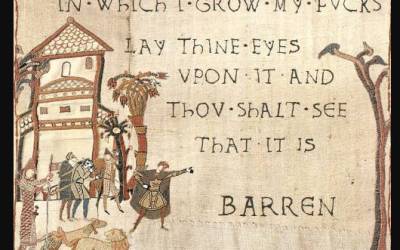 IN·WHICH·I·GROW·MY·FVCKS
LAY THINE·EYES
VPON·IT·AND
THOV·SHALT·SEE
THAT·IT·IS
BARREN